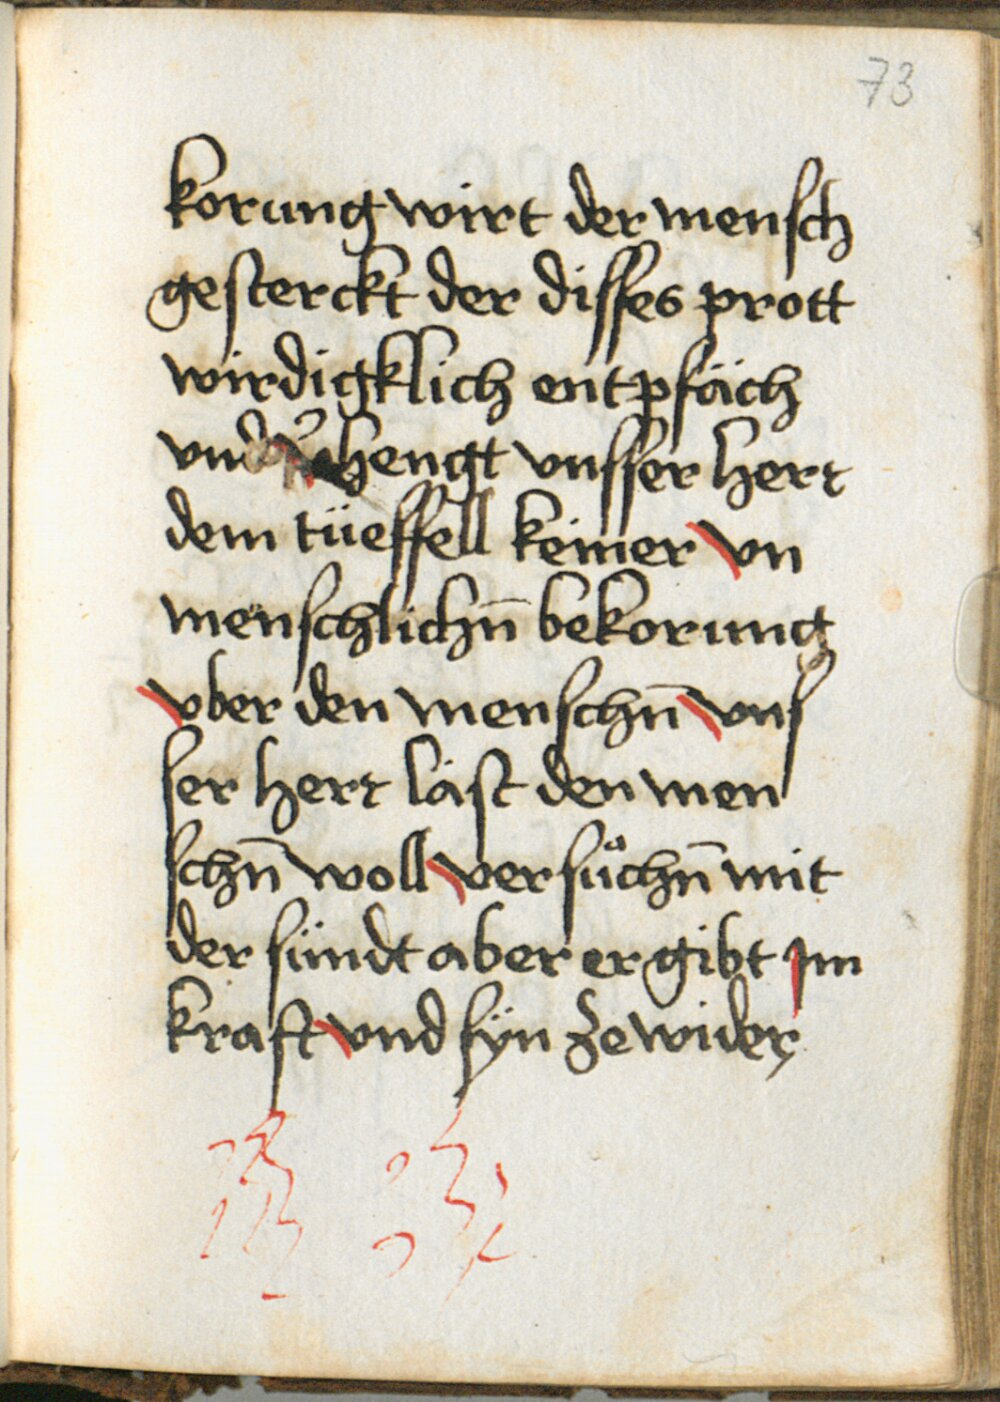 73
korung wirt der mensch
gesterckt der disses prott
wirdigklich entpfäch
vnd hengt vnsser hert
dem tüeffell keiner vn
menschlichn̄ bekorung
vber den menschn̄ vns
ser hert läst den men
schn̄ woll versůchn̄ mit
der sündt aber er gibt Im
krafft vnd sÿn ze wider